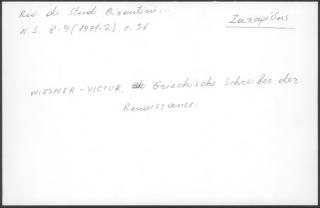 Riv. di Studi Bizantini...
Zaxapídns
N.S. 8-9 (1971-2). σ. 56
WIESNER-VICTOR, Griechische Schreiber der
Renaissance.